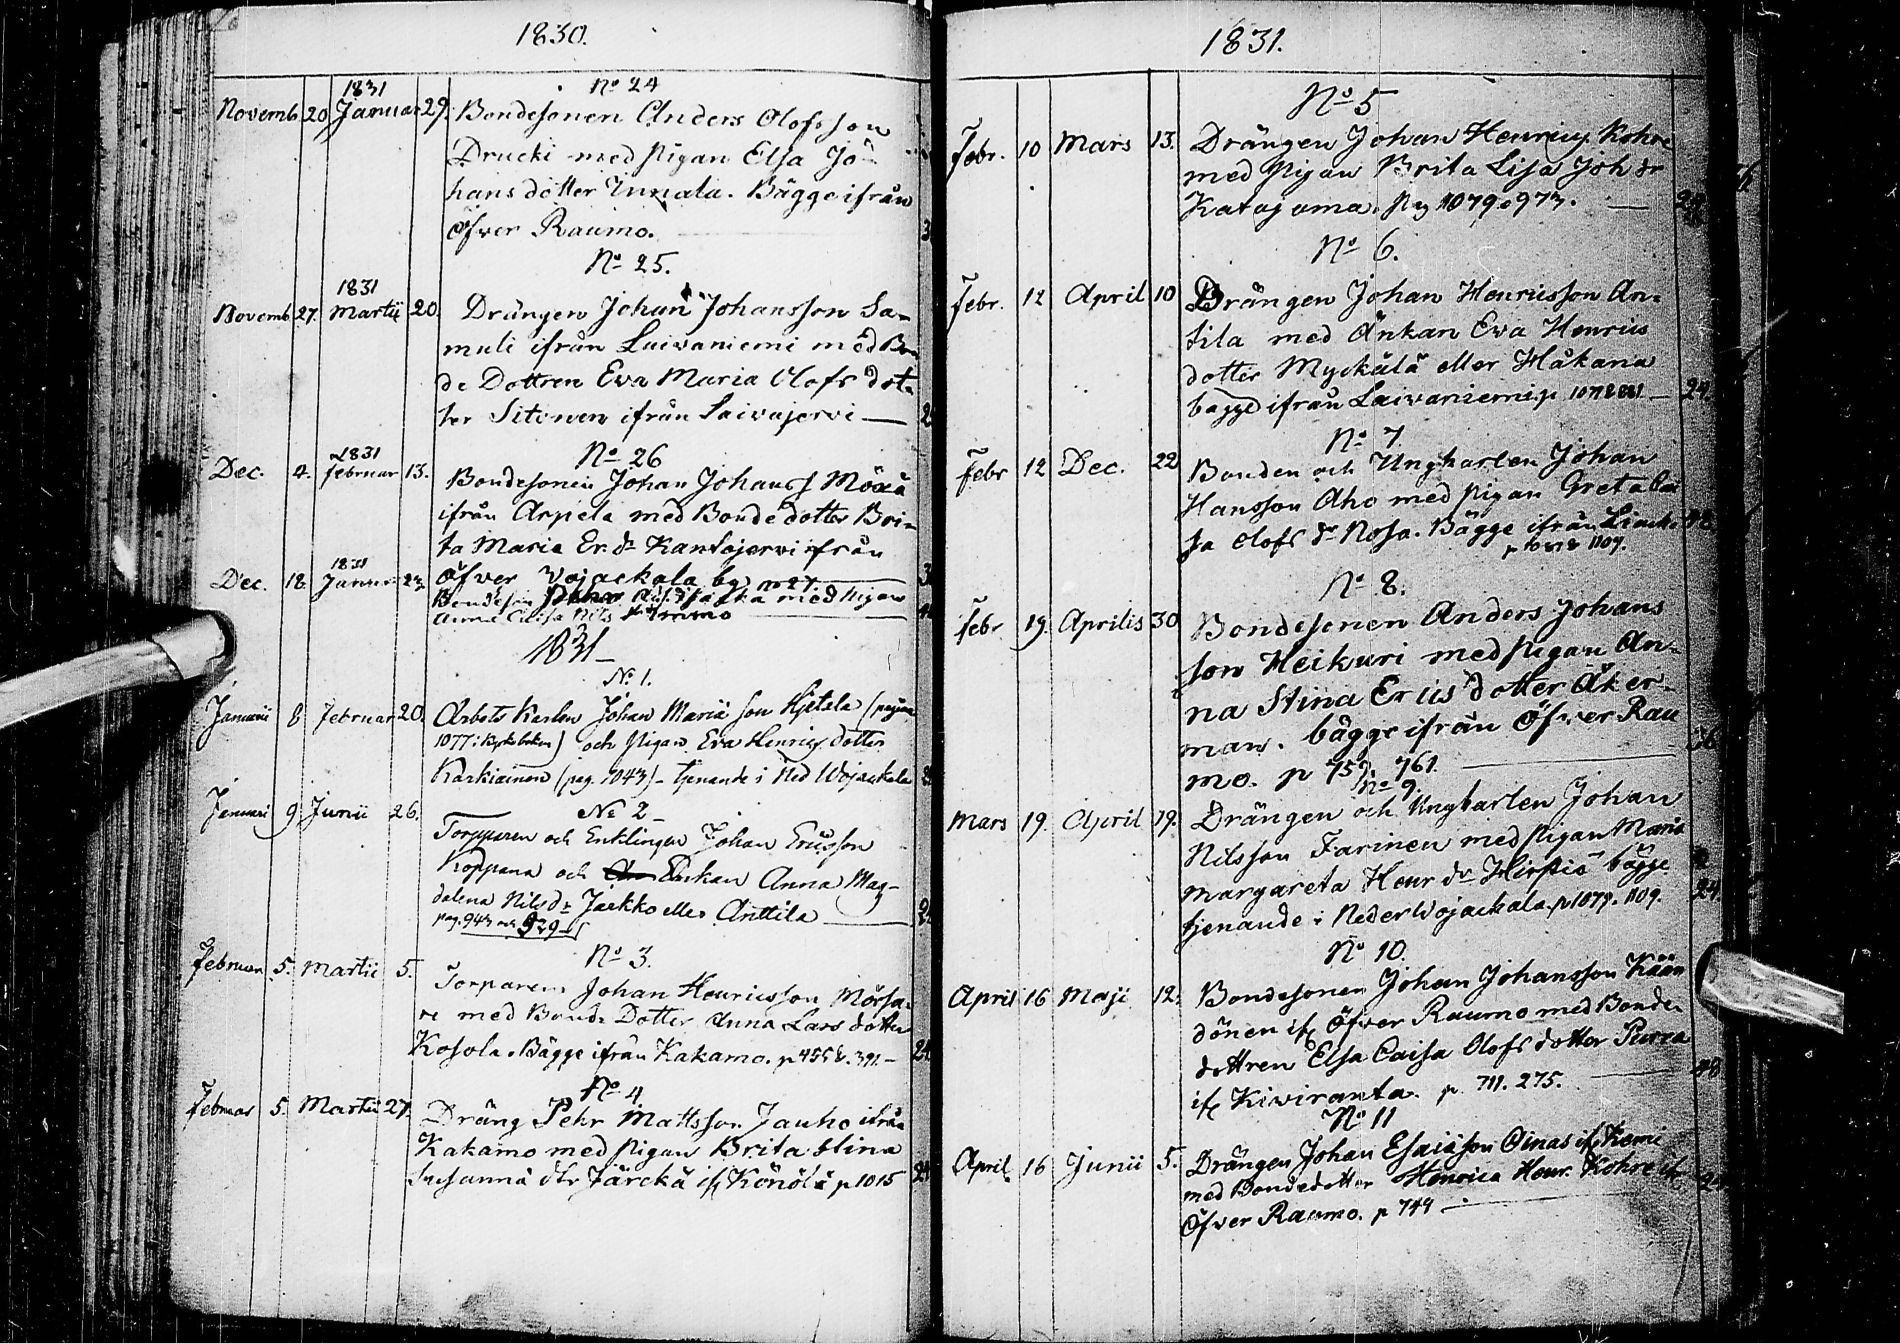 1830.
1831
No 24
Novemb. 20. Januar 29. Bondesonen Anders Olofsson
Drucki med pigan Elsa Jo-
hans dotter Innala. Bägge ifrån
Öfver Raumo.
No 25.
1831
Novemb. 27. Martii 20. Drängen Johan Johansson Sa-
muli ifrån Laivaniemi med Bon
de Dottren Eva Maria Olofs dot-
ter Sitonen ifrån Laivajervi
No 26
1831
Dec. 4. Februar 13. Bondesonen Johan Johanss
ifrån Arpela med Bonde dotter Bri-
ta Maria Er. dr Kantojervi ifrån
Öfver Wojackala bg
No 27.
1831
Dec. 18. Januar Bondeson med pigan
Anna Caisa Nils
1831
No 1.
Januarii 8. Februar 20. Arbets Karlen Johan son (pagina
1077 i Kyrkoboken) och Pigan Eva Henrics dotter
Karkiainen (pag. 1043) tjenande i Ned Wojackala
No 2
Januari 9. Junii 26. Torpparen och Enklingen Johan Ericsson
Koppana och Enkan Anna Mag-
dalena Nils dr Jackko eller Anttila
pag. 943 och 929
No 3.
Februar 5. Martii 5. Torparen Johan Henricsson Mörsä-
re med Bonde Dotter Anna Lars dotter
Kosola. Bägge ifrån Kakamo. p 455 & 391.
No 4
Februar 5. Martii 27. Dräng Pehr Mattsson Jauho ifrån
Kakamo med pigan Brita Stina
Susanna dtr Järckä if Könölä p 1015
1831.
No 5
Febr. 10 Mars 13. Drängen Johan Henrics Kohre
med pigan Brita Lisa Joh dr
Katajama. Pag 1079 o 973.
No 6.
Febr. 12 April 10 Drängen Johan Henricsson An-
tila med Änkan Eva Henrics
dotter Myckälä eller Håkana
bägge ifrån Laivaniemi p
24.
No 7
Febr 12 Dec. 22 Bonden och Ungkarlen Johan
Hansson Aho med pigan Greta Cai
sa Olofs dr Rosa. Bägge ifrån
1109.
No 8.
Febr 19. Aprilis 30 Bondesonen Anders Johans
son Heikuri med pigan An-
na Stina Erics dotter Åker-
man. bägge ifrån Öfver Rau
mo. p 759. 761.
No 9.
Mars 19. April 19. Drängen och Ungkarlen Johan
Nilsson Farinen med pigan Maria
Margareta Henr dr bägge
tjenande i Neder Wojackala. p 1079. 1109.
24
No 10.
April 16 Maji 12. Bondesonen Johan Johansson Kään
dönen if Öfver Raumo med Bonde-
dottren Elsa Caisa Olofs dotter Purra
if Kiviranta. p. 711. 275.
48
No 11
April 16 Junii 5. Drängen Johan Esaiason Oinas if Kemi
med Bondedotter Henrica Henr. Kohre if
Öfver Raumo. p 749